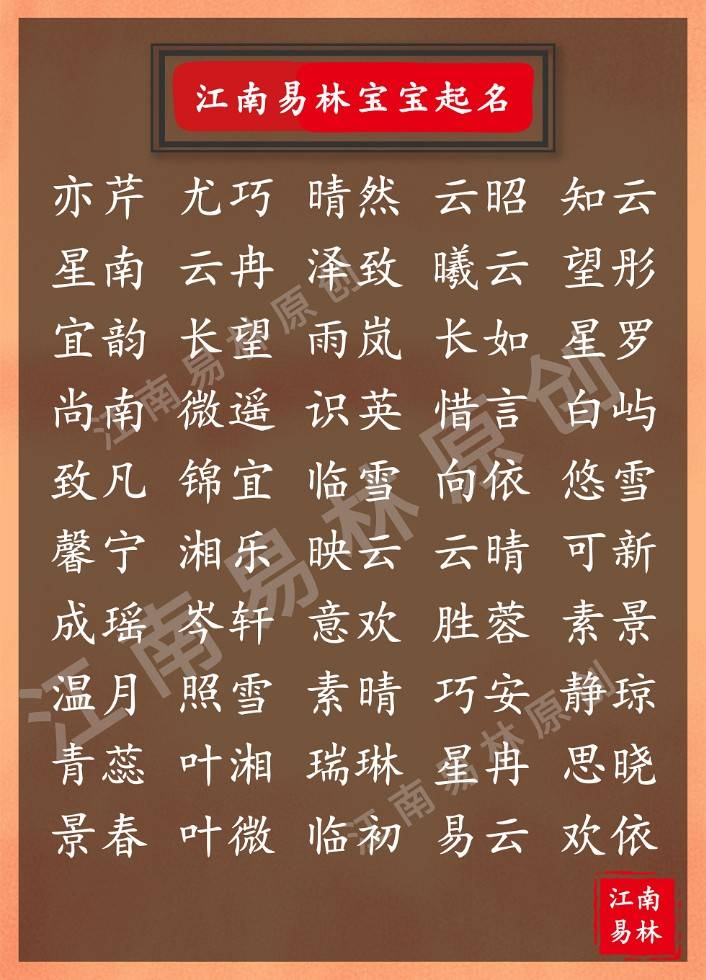 江南易林宝宝起名
亦芹 尤巧 晴然 云昭 知云
星南 云冉 泽致 曦云 望彤
宜韵 长望 雨岚 长如 星罗
尚南 微遥 识英 惜言 白屿
致凡 锦宜 临雪 向依 悠雪
馨宁 湘乐 映云 云晴 可新
成瑶 岑轩 意欢 胜蓉 素景
温月 照雪 素晴 巧安 静琼
青蕊 叶湘 瑞琳 星冉 思晓
景春 叶微 临初 易云 欢依
江南易林原创
江南易林原创
江南易林原创
江南
易林